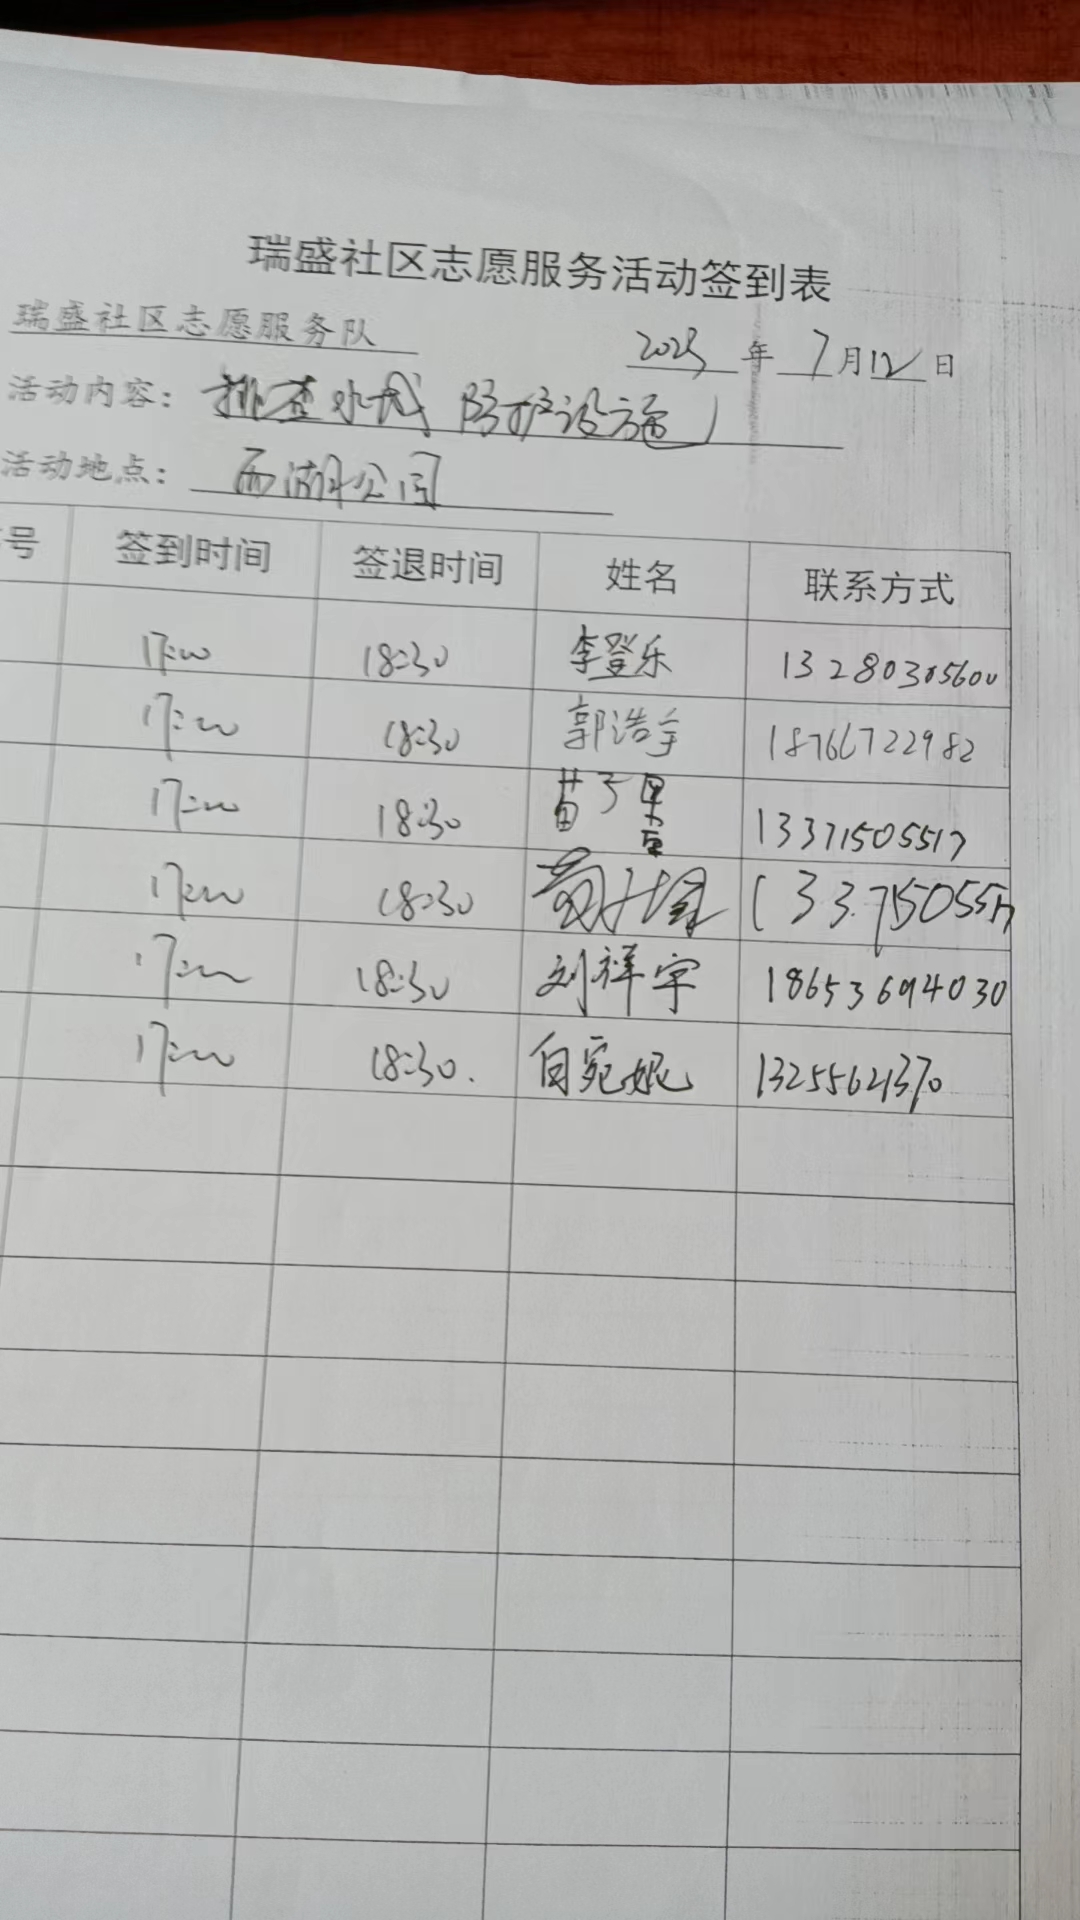 瑞盛社区志愿服务活动签到表
瑞盛社区志愿服务队 2025年7月12日
活动内容: 排查水域防护设施
活动地点: 西湖公园
号 签到时间 签退时间 姓名 联系方式
17:00 18:30 李登乐 13280305600
17:00 18:30 郭浩宇 18766722982
17:00 18:30 苗子 13371505517
17:00 18:30 13371505517
17:00 18:30 刘祥宇 18653694030
17:00 18:30 白宛妮 13255621370